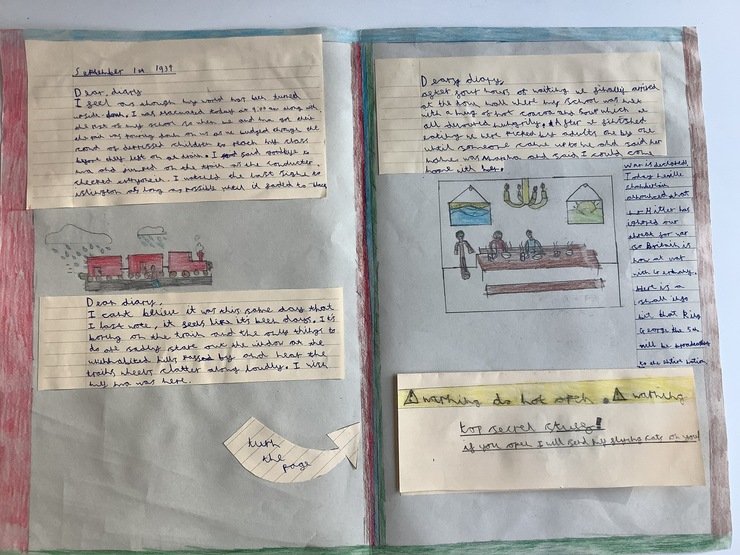 September 1st 1939
Dear, diary
I feel as though my world has been tuned
upside down. I was evacuated today at 9:00 am along with
the rest of my school so mama and
the rain was pouring down on us as we trudged through the
of distressed children to reach my class
before they left on a train. I said goodbye to
ma and jumped on the train as the conductor
checked everyone in. I watched the last sight to
islington as long as possible until it faded to
Dear diary,
I cant believe it was this same day that
I last wote, it feels like its been days. Its
boring on the train and the only things to
do are sadly stare out the window at the
hills passed by and hear the
trains wheels clatter along loudly. I wish
ma was here.
turn
the
page
Deary diary
after four hours of waiting we finally arrived
at the town hall where my school was met
with a mug of hot cocoa and soup which we
all devoured hungrily. After we finished
eating we were picked by adults one by one
until someone came up to me and said her
name was Martha and said I could come
home with her.
War is declared!
Today neville
chamberlain
announced that
Hitler has
ignored our
threat for war
so Britain is
now at war
with Germany.
there is a
small
but that King
George the 5th
will be broadcasting
to the nation
warning do not open. warning
top secret stuff!
if you open I will send my cats on you!